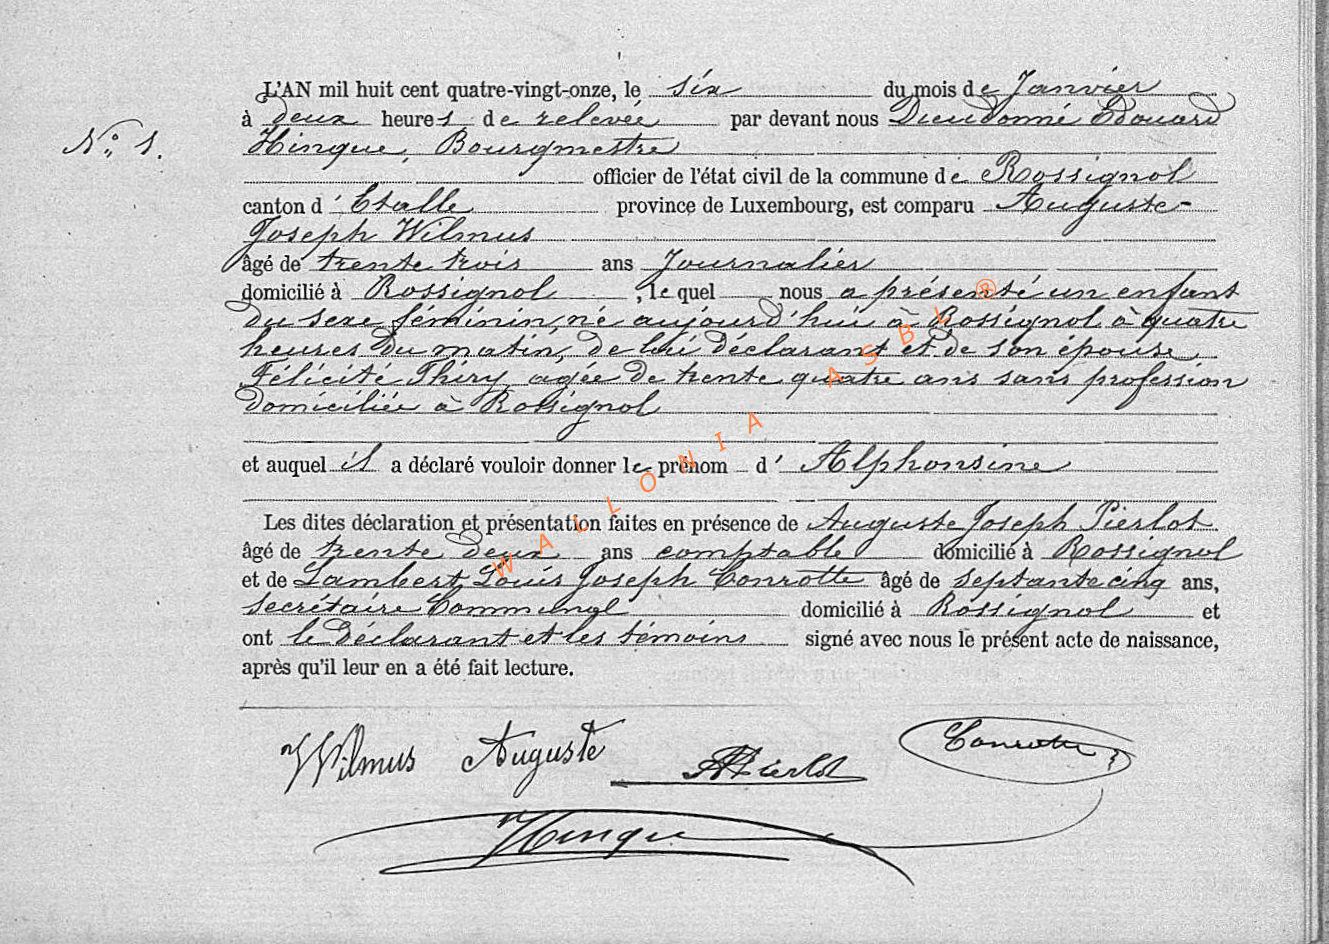 L'AN mil huit cent quatre-vingt-onze, le six du mois de Janvier
à deux heures de relevée par devant nous Dieudonné Edouard
N° 1. Hinque, Bourgmestre
officier de l'état civil de la commune de Rossignol
canton d'Etalle province de Luxembourg, est comparu Auguste-
Joseph Wilmus
âgé de trente trois ans Journalier
domicilié à Rossignol, lequel nous a présenté un enfant
du sexe féminin, né aujourd'hui à Rossignol à quatre
heures du matin, de lui déclarant et de son épouse
Félicité Thiry, agée de trente quatre ans sans profession
domiciliée à Rossignol
et auquel il a déclaré vouloir donner le prénom d'Alphonsine
Les dites déclaration et présentation faites en présence de Auguste Joseph Pierlot
âgé de trente deux ans comptable domicilié à Rossignol
et de Lambert Louis Joseph Conrotte âgé de septante cinq ans,
secrétaire Communal domicilié à Rossignol et
ont le déclarant et les témoins signé avec nous le présent acte de naissance,
après qu'il leur en a été fait lecture.
Wilmus Auguste APierlot Conrotte
Hinque
WALLONIA ASBL ®